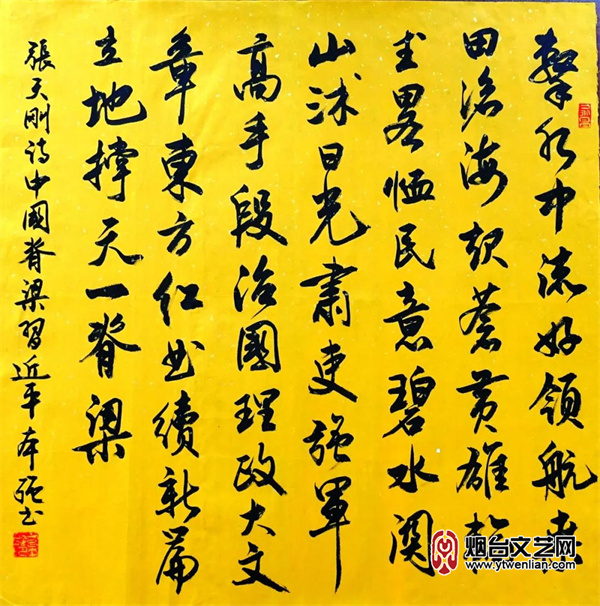 擊水中流好领航桑
田滄海起蒼黄雄韬
畧恤民意碧水関
山沐日光肅吏强軍
高手段治國理政大文
章東方红曲續新篇
立地撑天一脊梁
張天剛诗中國脊梁習近平本强书
烟台文艺网
www.ytwenlian.com